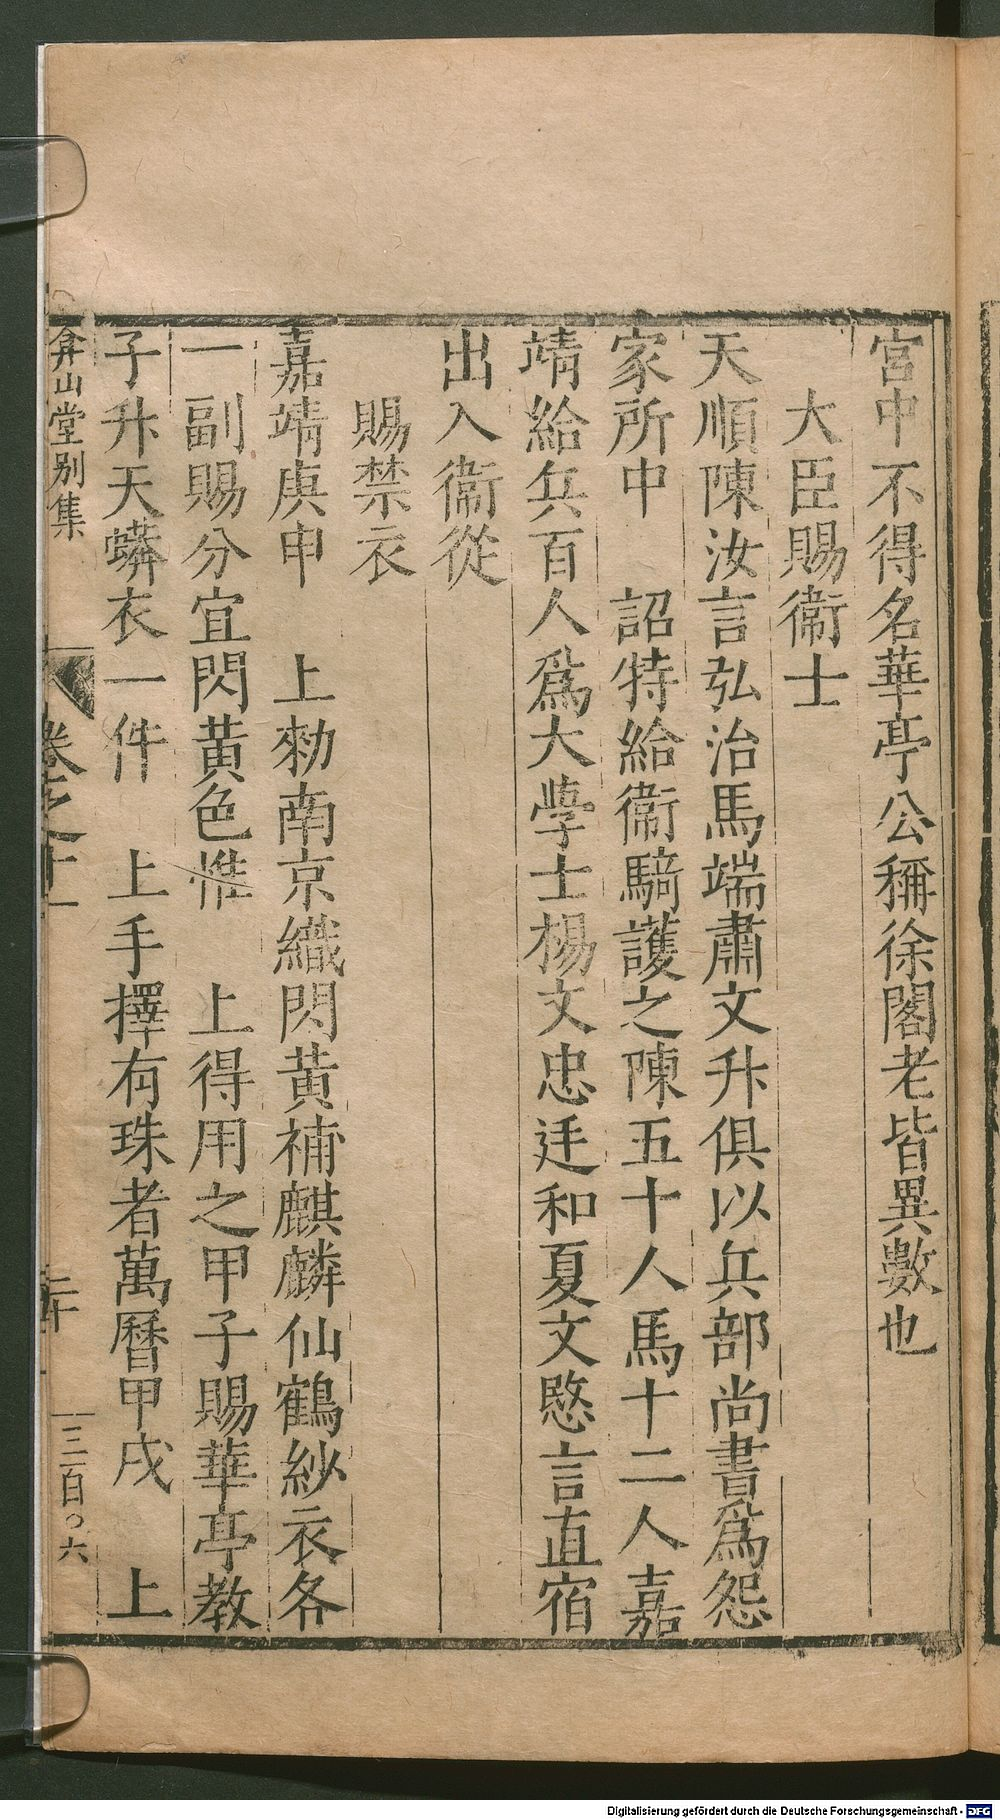 宮中不得名華亭公稱徐閣老皆異數也
大臣賜衞士
天順陳汝言弘治馬端肅文升俱以兵部尚書爲怨
家所中 詔特給衞騎護之陳五十人馬十二人嘉
靖給兵百人爲大學士楊文忠廷和夏文愍言直宿
出入衞從
賜禁衣
嘉靖庚申 上勑南京織閃黃補麒麟仙鶴紗衣各
一副賜分宜閃黃色惟 上得用之甲子賜華亭教
子升天蟒衣一件 上手擇有珠者萬曆甲戌 上
弇山堂別集 卷之十一 二十 三百〇六
Digitalisierung gefördert durch die Deutsche Forschungsgemeinschaft - DFG